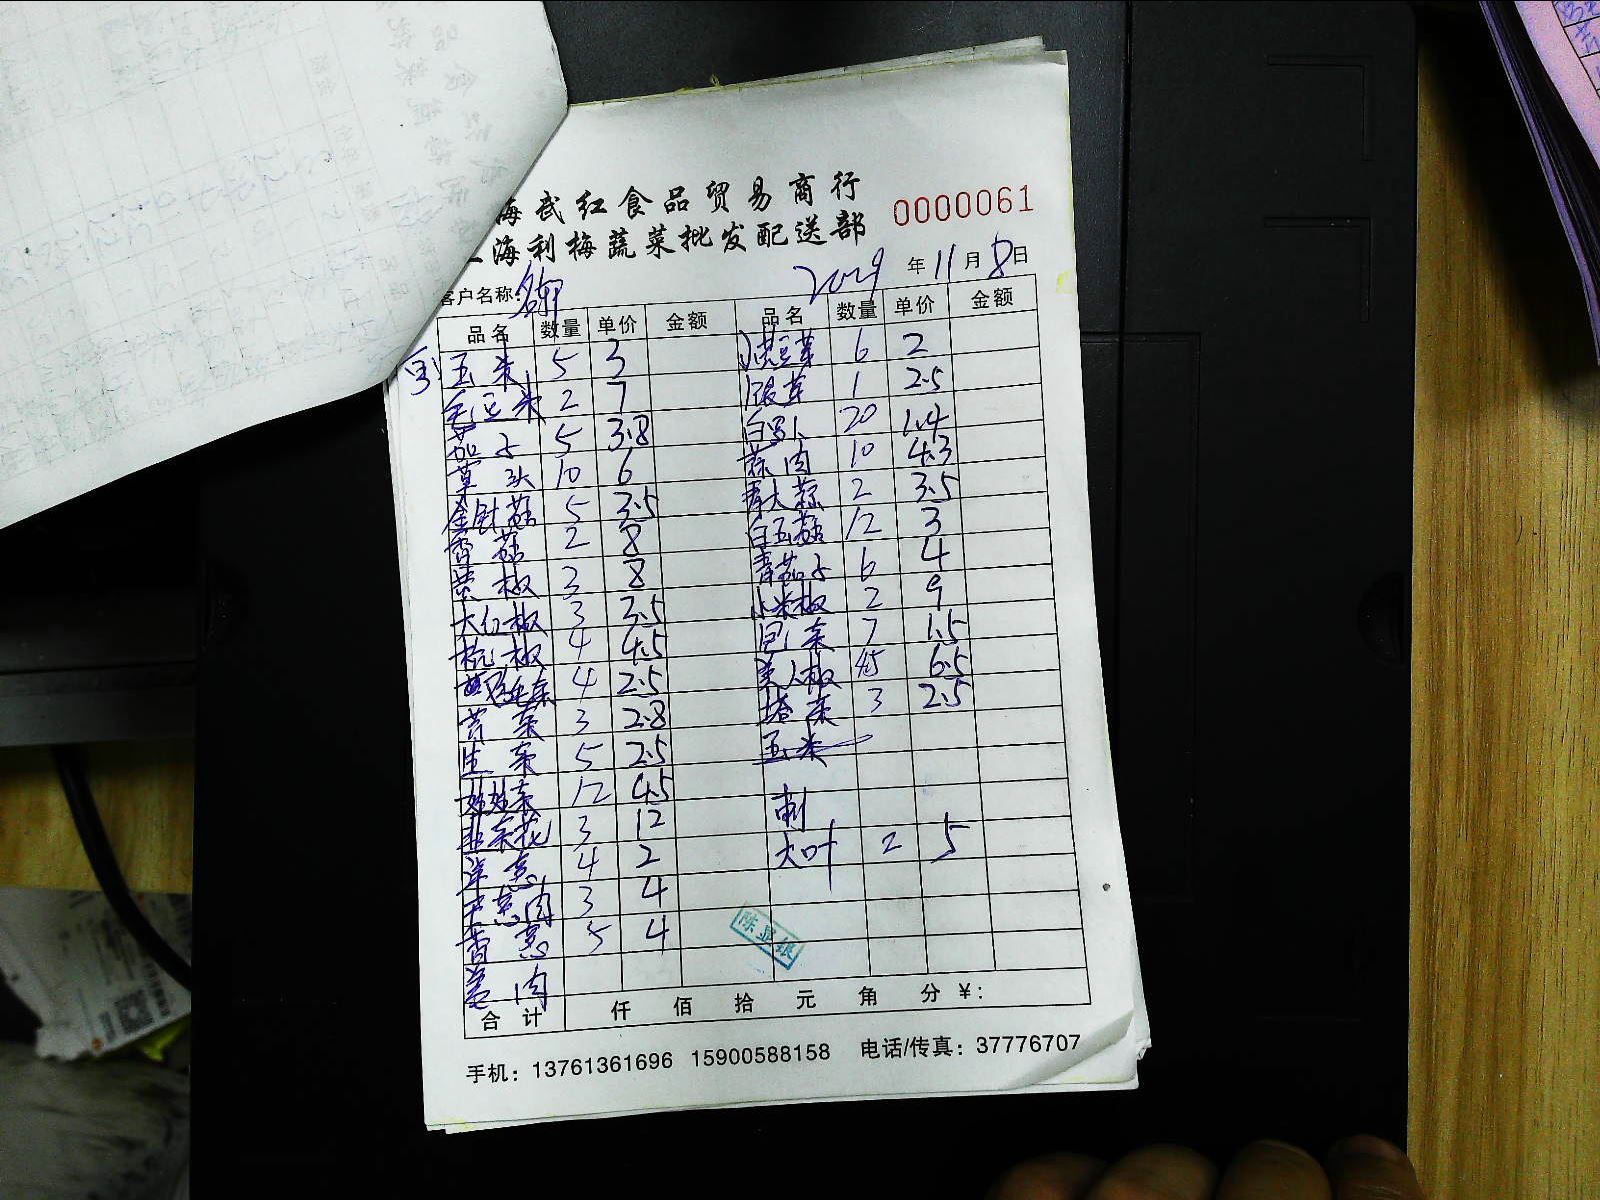 海武红食品贸易商行
海利梅蔬菜批发配送部
0000061
客户名称:
年 11 月 8 日
品名 数量 单价 金额 品名 数量 单价 金额
玉米 5 3 小黄豆芽 6 2
毛豆米 2 7 银芽 1 2.5
茄子 5 3.8 白萝卜 20 1.4
草头 10 6 蒜肉 10 4.3
金针菇 5 3.5 青大蒜 2 3.5
香菇 2 8 白玉菇 12 3
黄椒 3 8 青茄子 6 4
大红椒 3 3.5 小米椒 2 9
杭椒 4 4.5 包菜 7 1.5
4 2.5 美人椒 45 6.5
苦菜 3 2.8 塔菜 3 2.5
生菜 5 2.5 玉米
娃娃菜 12 4.5
韭菜花 3 12
洋葱 4 2 大叶 2 5
葱肉 3 4
香葱 5 4
姜肉
陈显银
合计 仟 佰 拾 元 角 分 ¥:
手机: 13761361696 15900588158 电话/传真: 37776707